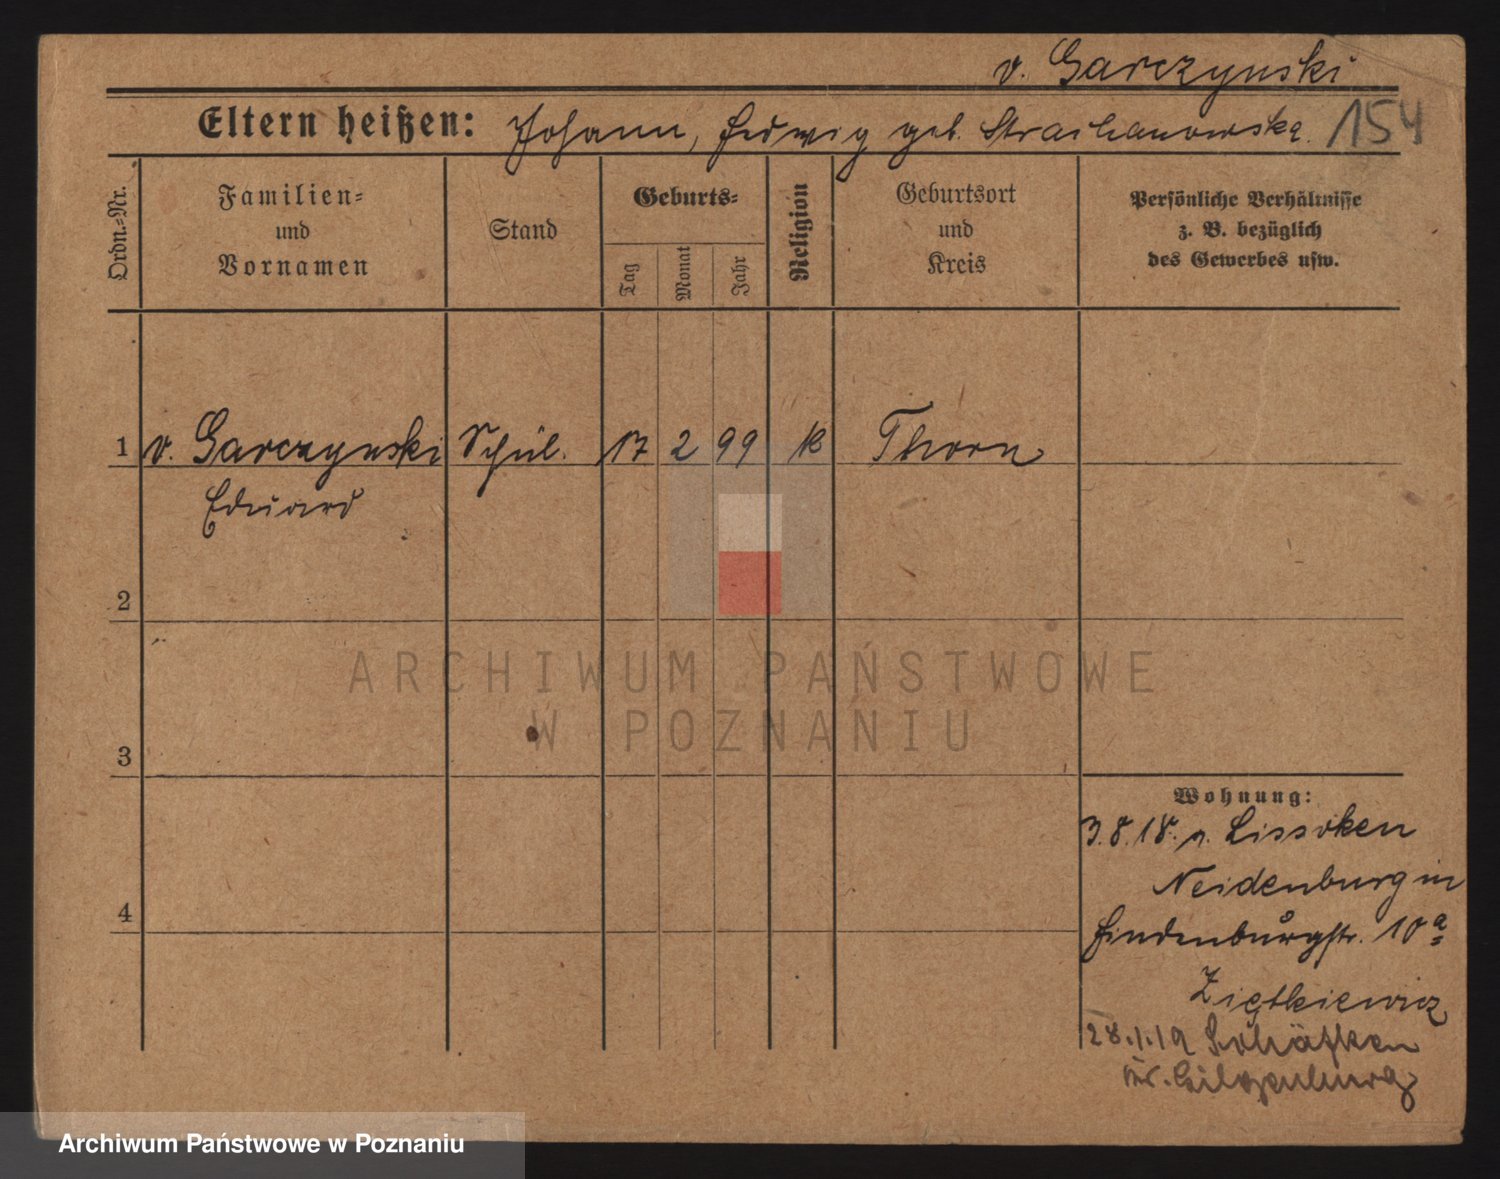 v. Garczynski
Eltern heißen: Johann, Hedwig geb. Strachanowska. 154
Ordn.=Nr.
Familien=
und
Vornamen
Stand
Geburts=
Tag
Monat
Jahr
Religion
Geburtsort
und
Kreis
Persönliche Verhältnisse
z. B. bezüglich
des Gewerbes usw.
1 v. Garczynski Schül. 17 2 99 K Thorn
Eduard
2
3
4
Wohnung:
3.8.18. n. Lissaken
Neidenburg in
Hindenburgstr. 10 a
Ziętkiewicz
28.1.19
Gilgenburg
ARCHIWUM PAŃSTWOWE
W POZNANIU
Archiwum Państwowe w Poznaniu